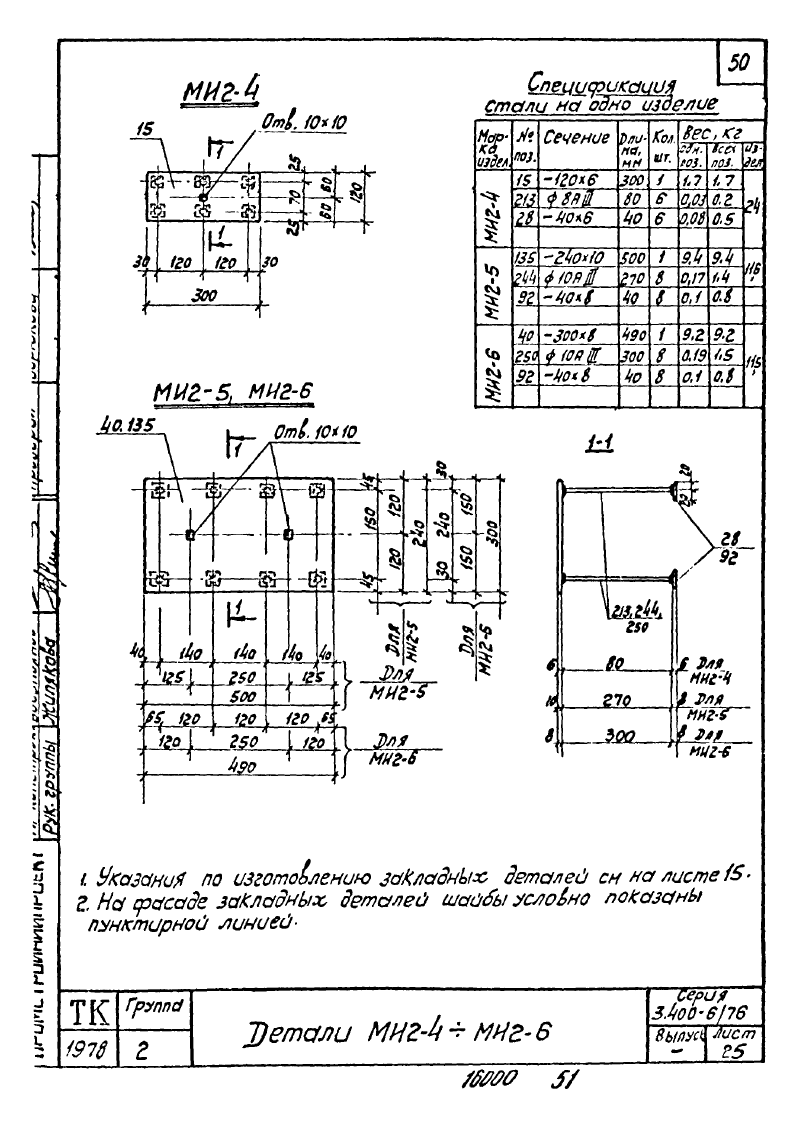 50
МИ2-4
Отв. 10×10
15
1
1
25
70
25
60
60
120
30 120 120 30
300
Спецификация
стали на одно изделие
Марка издел. № поз. Сечение Длина, мм Кол. шт. Вес, кг
одн. поз. всех поз. издел
МИ2-4
15 -120×6 300 1 1,7 1,7
213 ф 8AIII 80 6 0,03 0.2 2,4
28 -40×6 40 6 0,08 0.5
МИ2-5
135 -240×10 500 1 9,4 9.4
244 ф 10AIII 270 8 0,17 1.4 11,6
92 -40×8 40 8 0,1 0.8
МИ2-6
40 -300×8 490 1 9.2 9.2
250 ф 10AIII 300 8 0.19 1.5 11,5
92 -40×8 40 8 0.1 0.8
МИ2-5, МИ2-6
40.135
Отв. 10×10
1
1
45
150
45
120
120
240
30
240
30
150
150
300
Для МИ2-5
Для МИ2-5
40 140 140 140 40
125 250 125
500
Для МИ2-5
65 120 120 120 65
120 250 120
490
Для МИ2-6
1-1
20
20
28
92
213,244,
250
6 80 6 Для МИ2-4
10 270 8 Для МИ2-5
8 300 8 Для МИ2-6
1. Указания по изготовлению закладных деталей см на листе 15.
2. На фасаде закладных деталей шайбы условно показаны
пунктирной линией.
Рук. группы Жилякова
ТК
1978
Группа
2
Детали МИ2-4 ÷ МИ2-6
Серия
3.400-6/76
Выпуск
-
Лист
25
16000 51